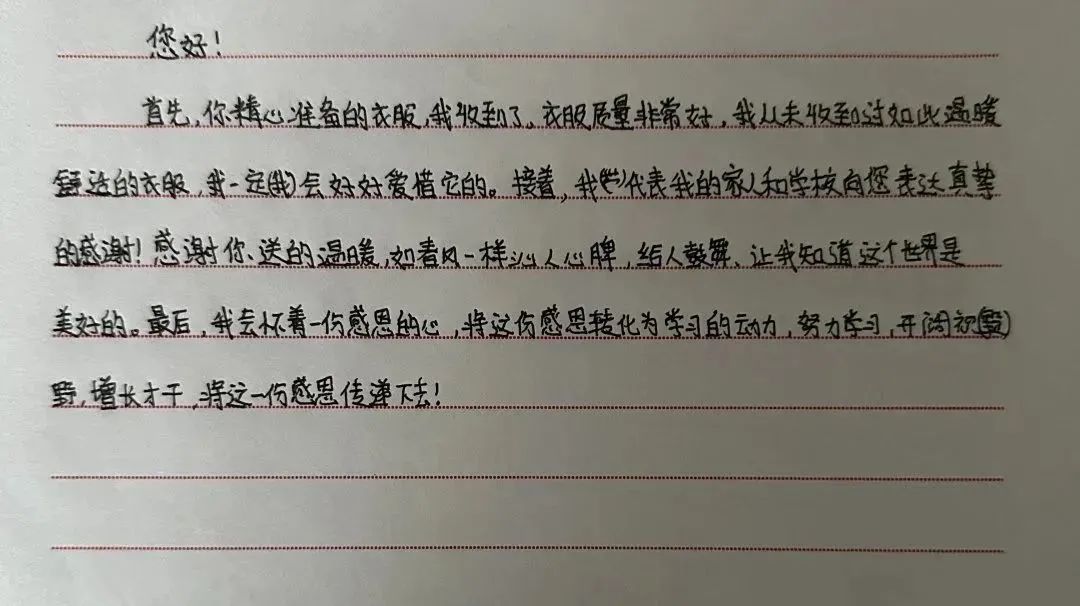 您好！
首先，你精心准备的衣服，我收到了。衣服质量非常好，我从未收到过如此温暖
舒适的衣服，我一定(我)会好好爱惜它的。接着，我代表我的家人和学校向您表达真挚
的感谢！感谢你、送的温暖，如春风一样沁人心脾，给人鼓舞、让我知道这个世界是
美好的。最后，我会怀着一份感恩的心，将这份感恩转化为学习的动力，努力学习，开阔视
野，增长才干，将这一份感恩传递下去！